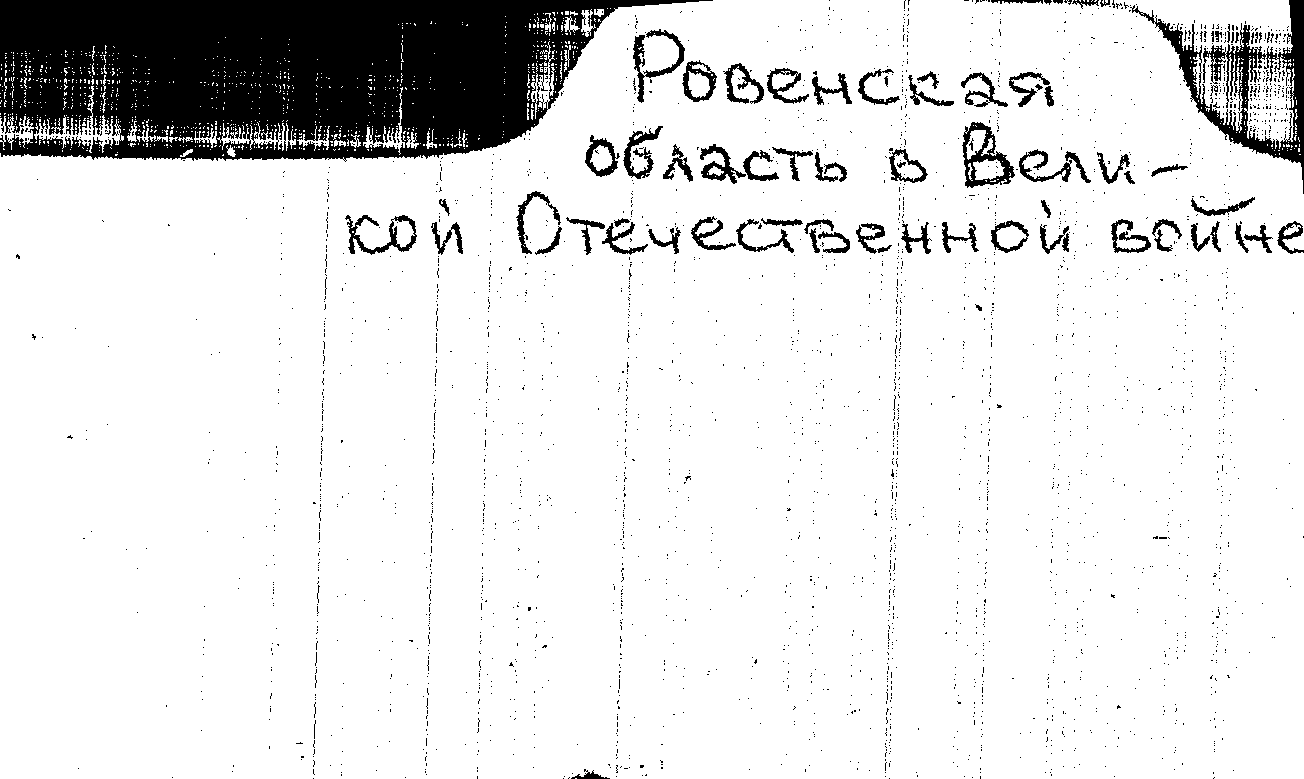 Ровенская
область в Вели-
кой Отечественной войне